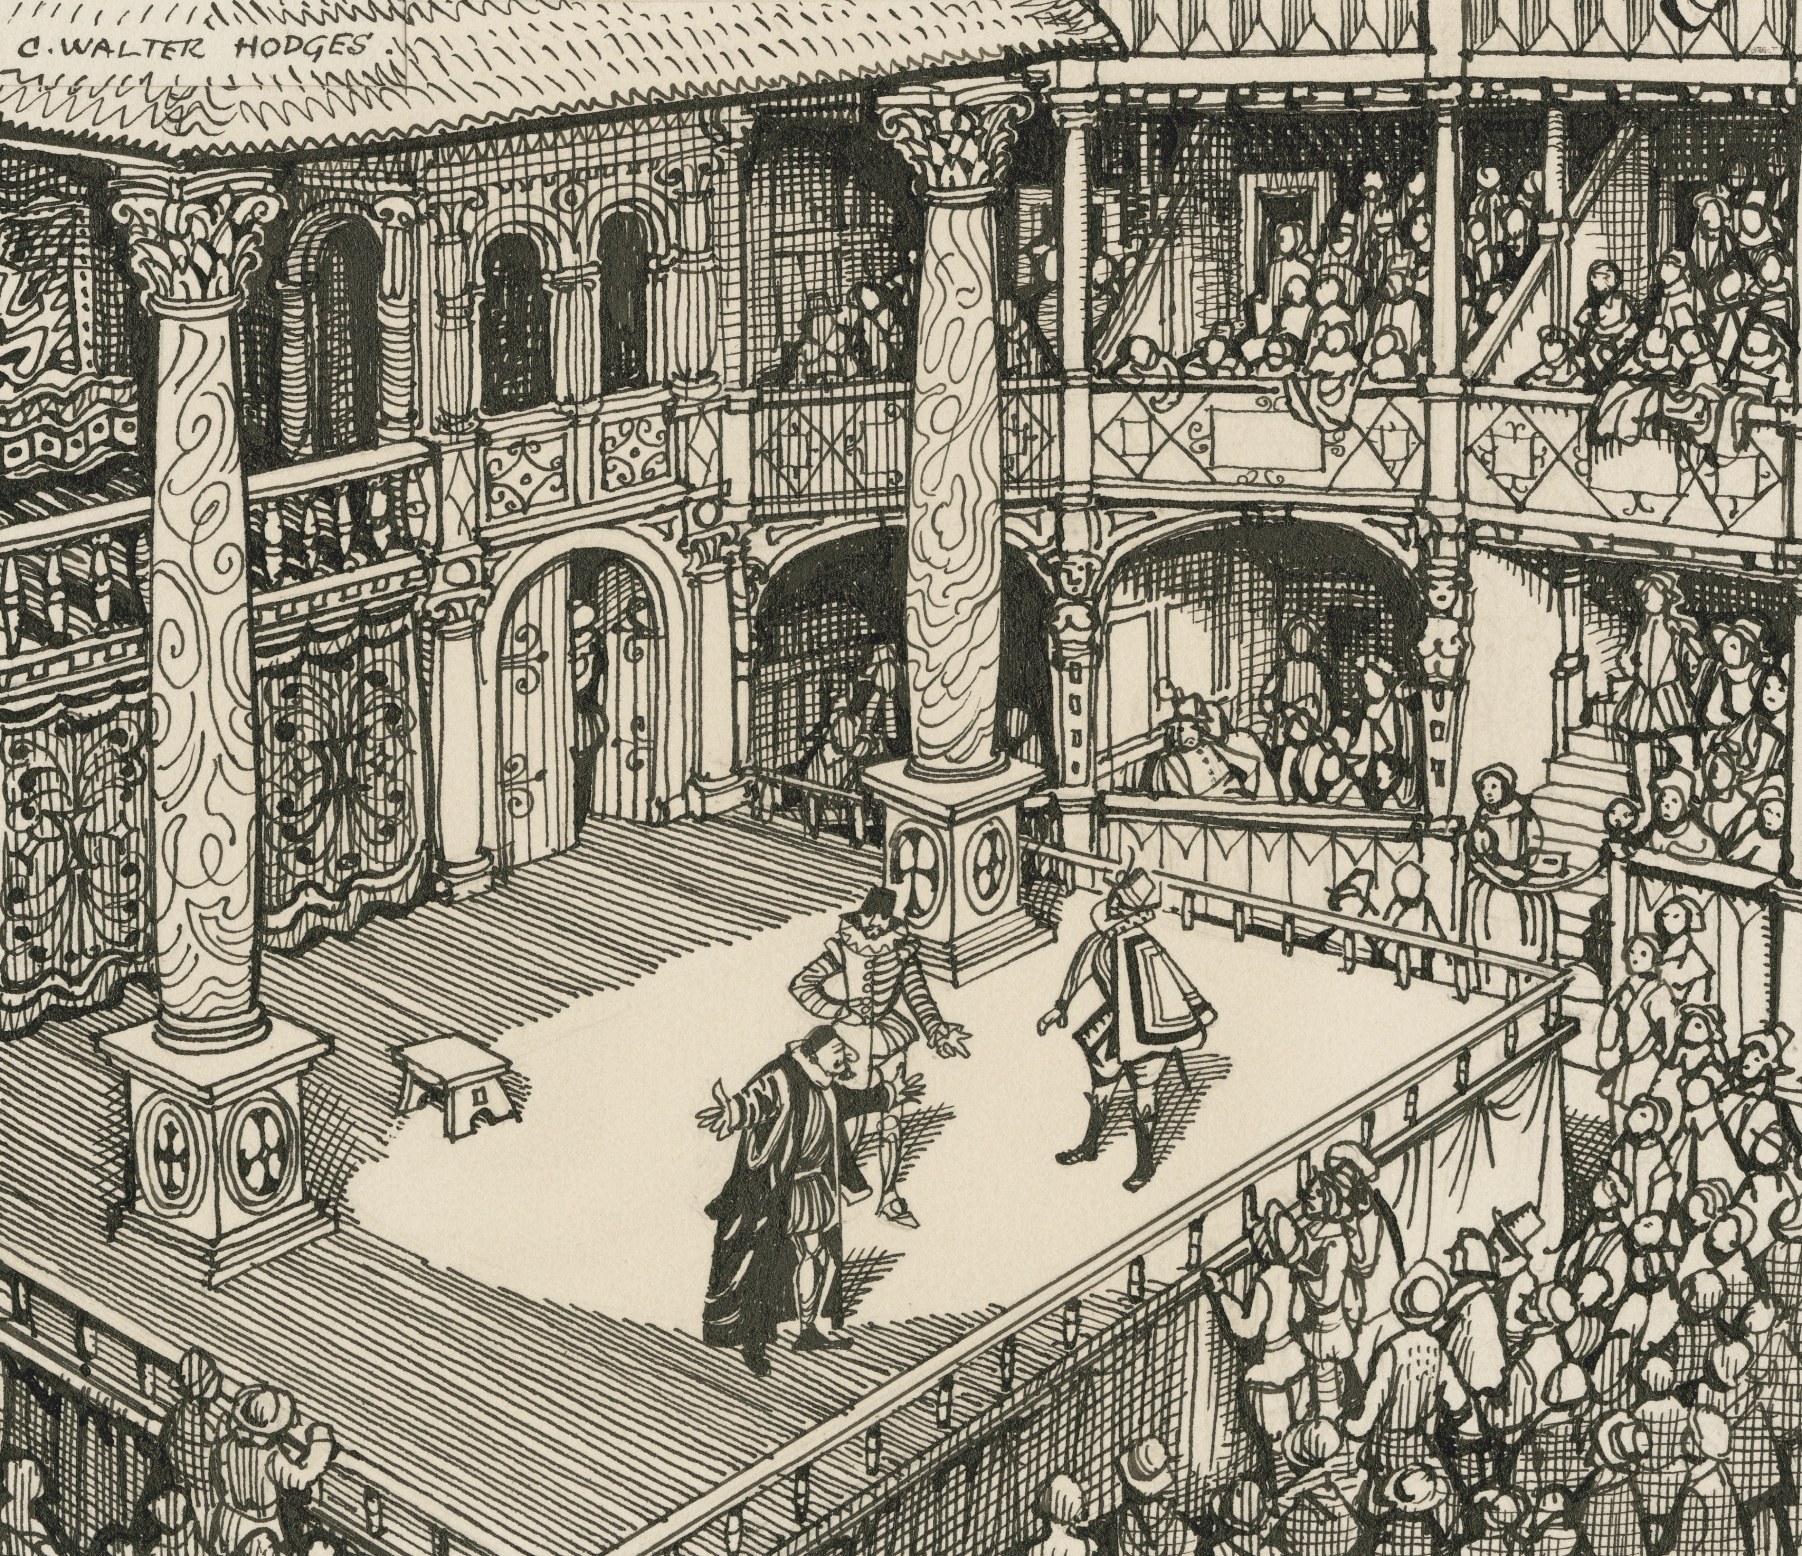 C. WALTER HODGES.